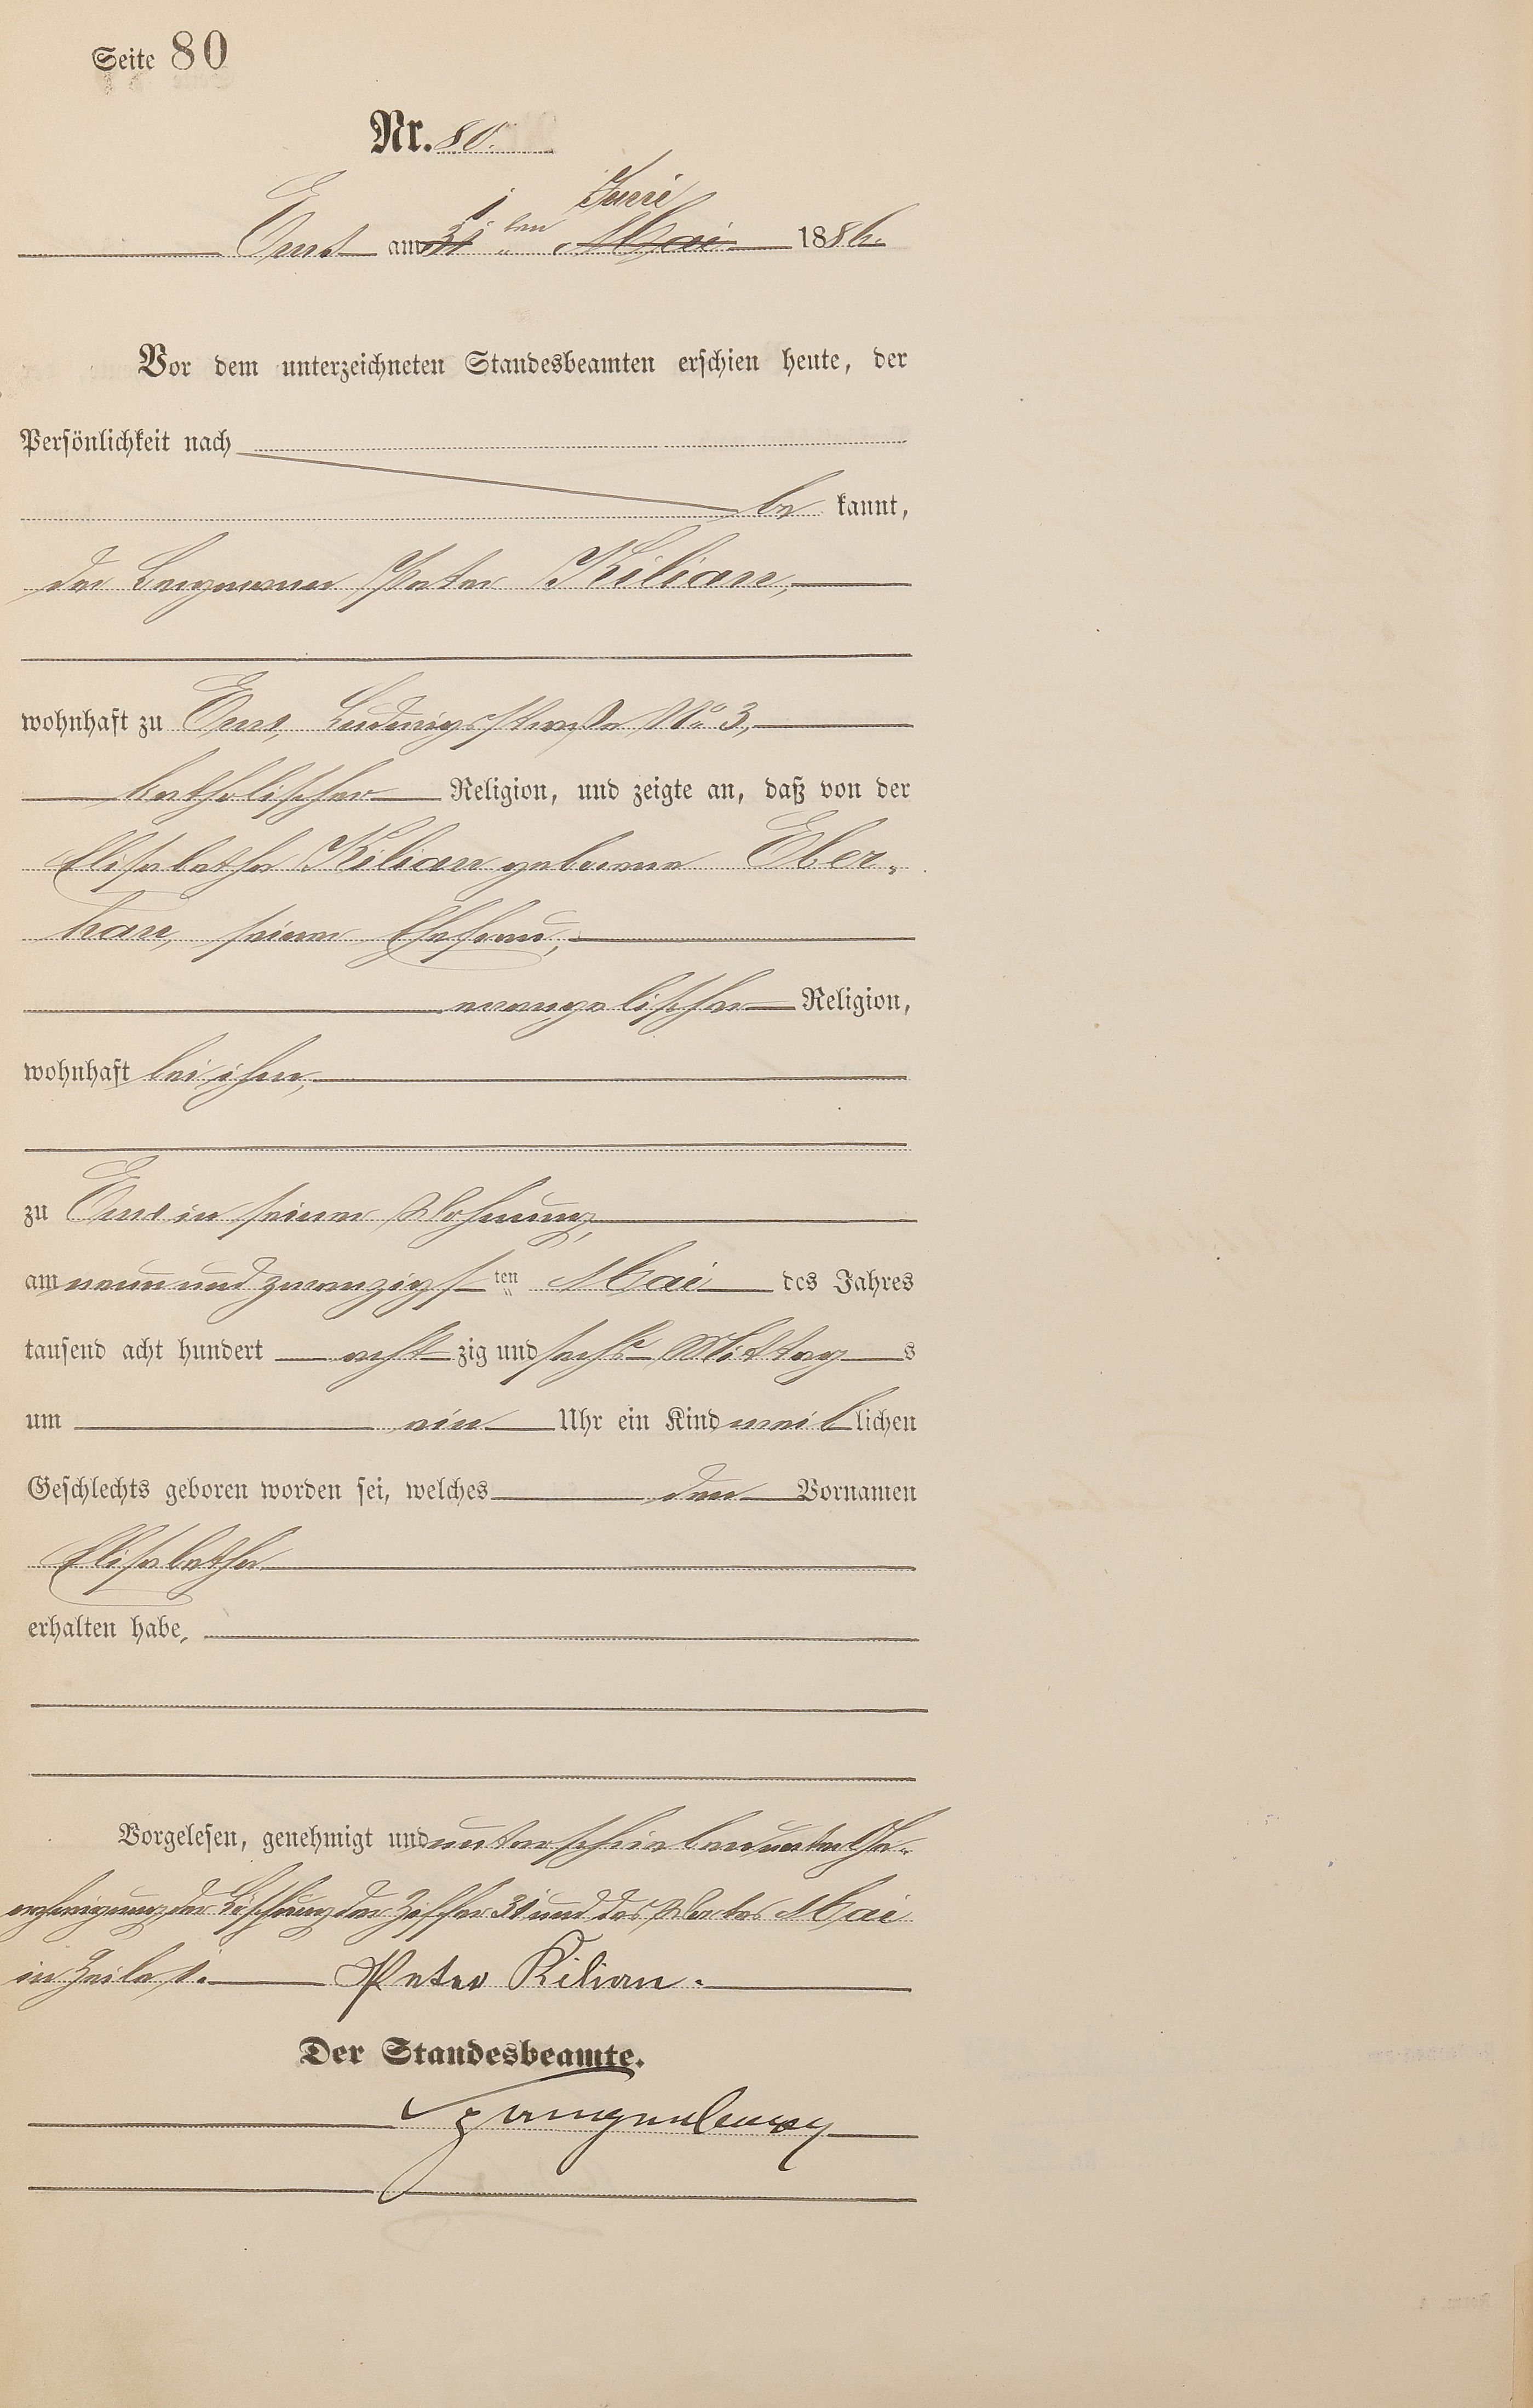 Seite 80
Nr. 80.
1 Juni
Ems am 31 ten Mai 1886.
Vor dem unterzeichneten Standesbeamten erschien heute, der
Persönlichkeit nach
be kannt,
der Bergmann Peter Kilian,
wohnhaft zu Ems, Ludwigsstraße No 3,
katholischer Religion, und zeigte an, daß von der
Elisabetha Kilian geborene Eber-
han, seiner Ehefrau,
evangelischer Religion,
wohnhaft bei ihm,
zu Ems in seiner Wohnung,
am neun und zwanzigsten Mai des Jahres
tausend acht hundert acht zig und sechs Mittags
um ein Uhr ein Kind weiblichen
Geschlechts geboren worden sei, welches den Vornamen
Elisabetha
erhalten habe,
Vorgelesen, genehmigt und unterschrieben unter Ge-
nehmigung der Löschung der Ziffer 31 und des Wortes Mai
in Zeile 1. Peter Kilian.
Der Standesbeamte.
Spangenberg